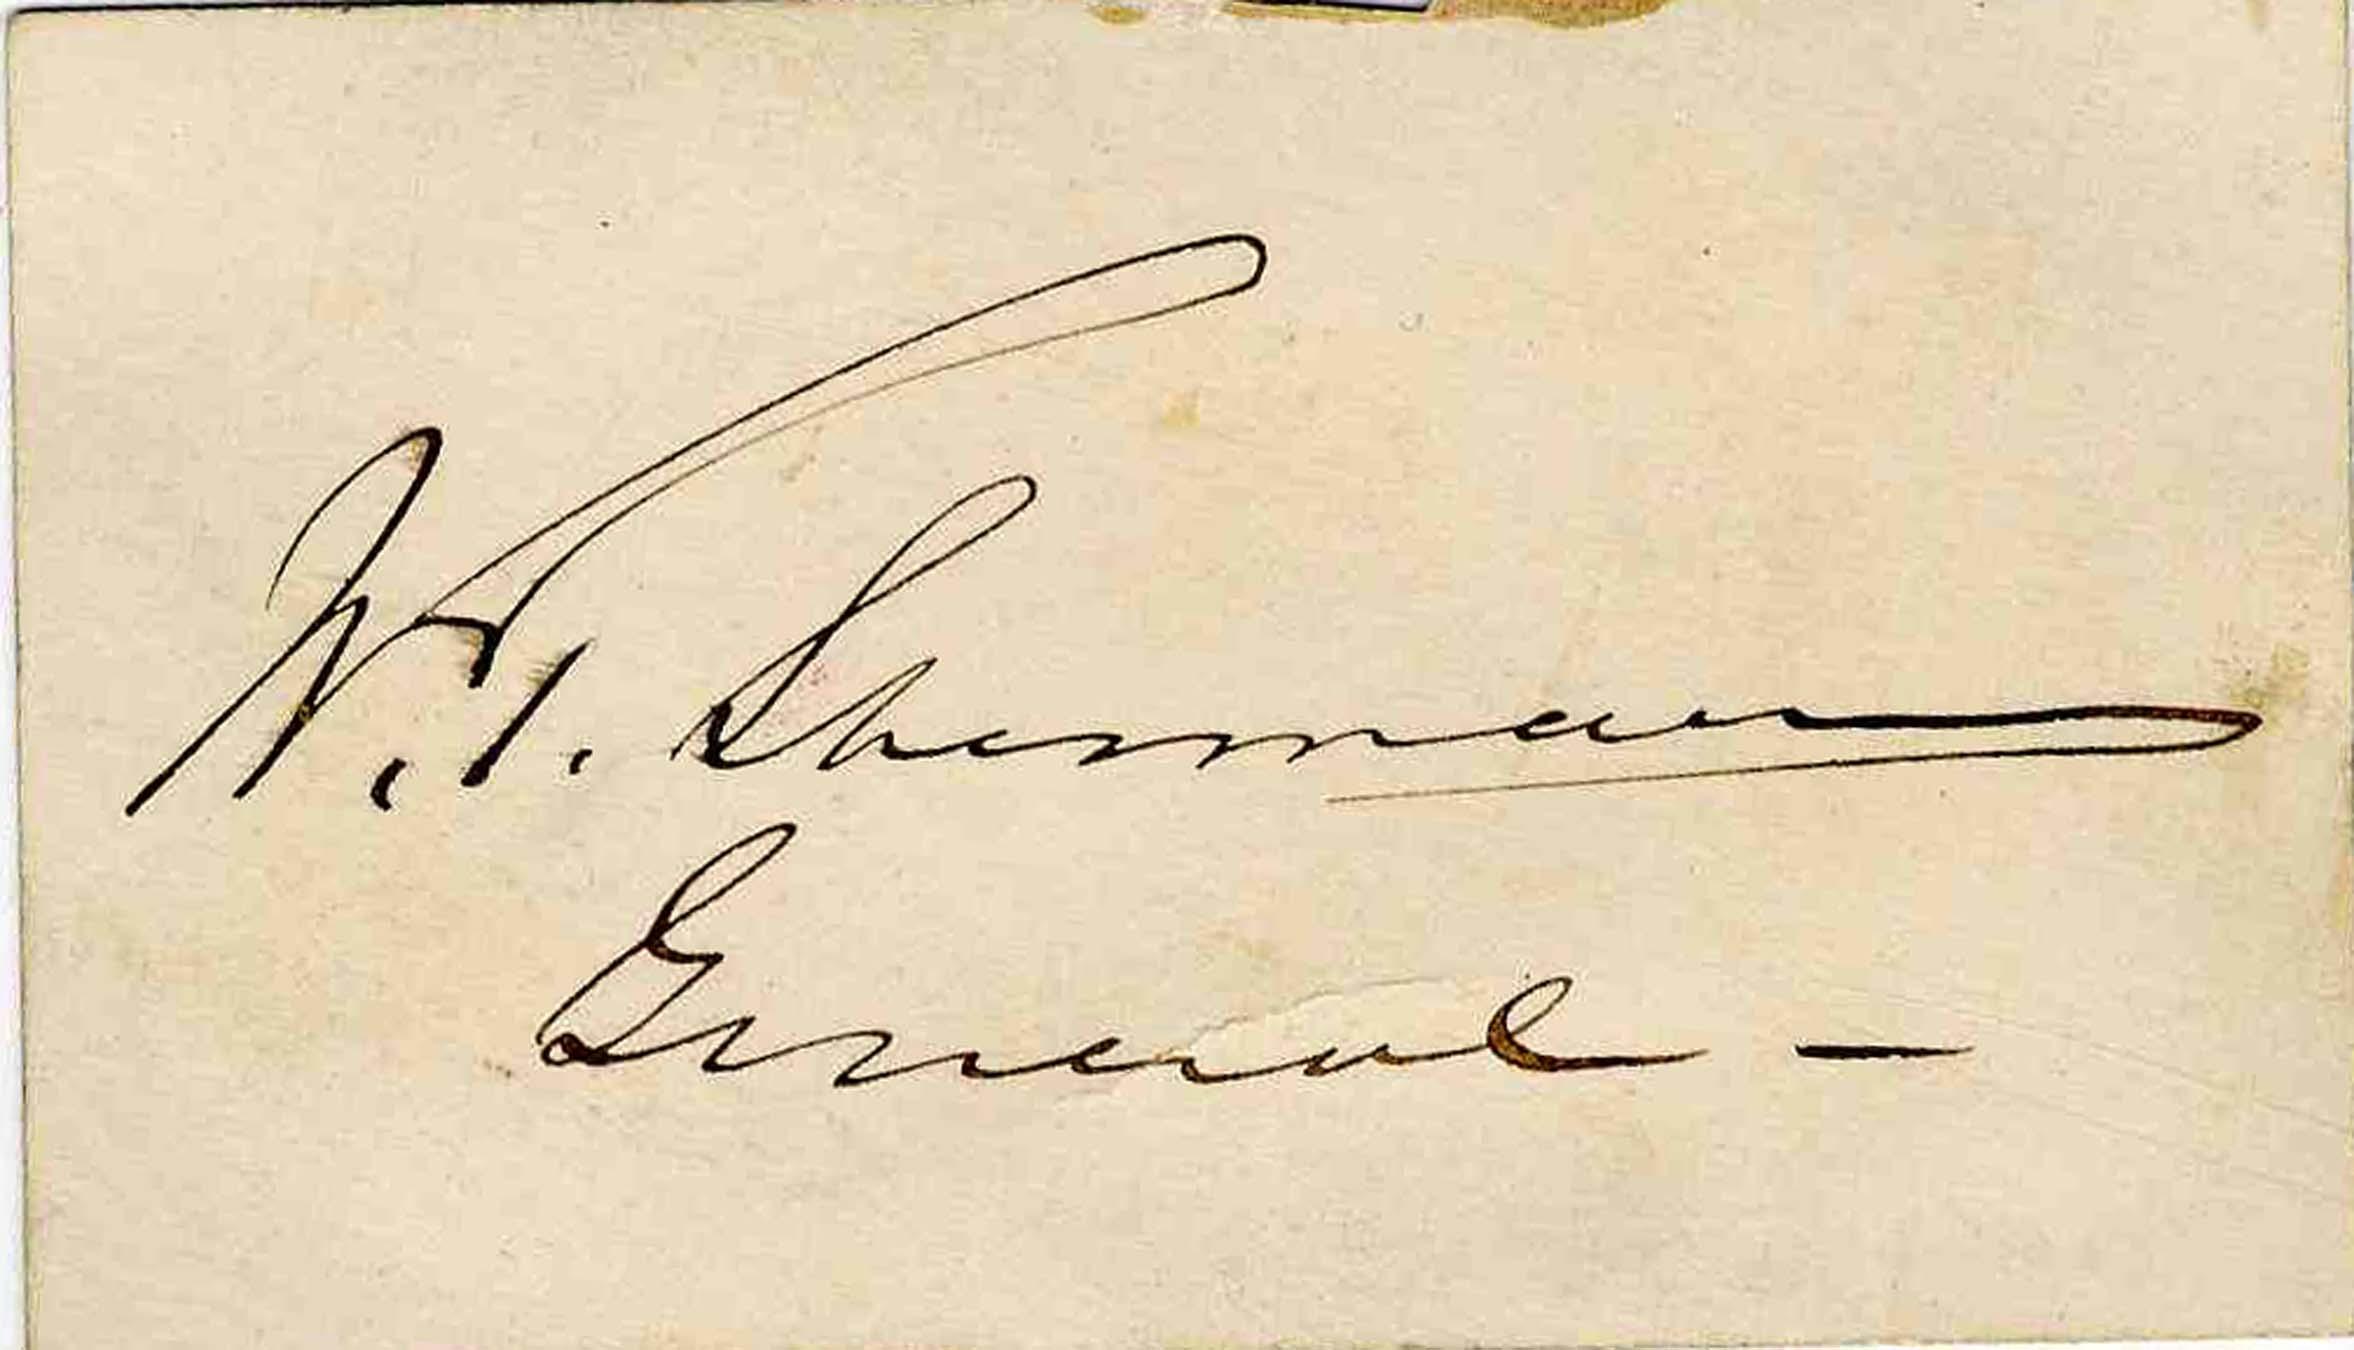 W. T. Sherman
General -